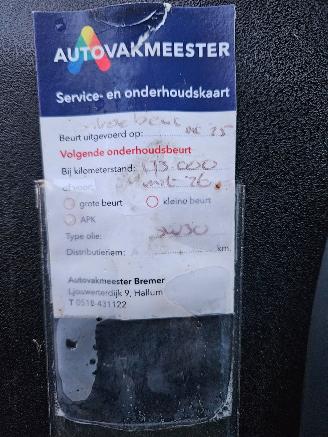 AUTOVAKMEESTER
Service- en onderhoudskaart
beurt
Beurt uitgevoerd op: 25
Volgende onderhoudsbeurt
Bij kilometerstand: 173.000
of voor: Maart 26
grote beurt kleine beurt
APK
Type olie: 5W30
Distributieriem: km.
Autovakmeester Bremer
Ljouwerterdijk 9, Hallum
T 0518-431122